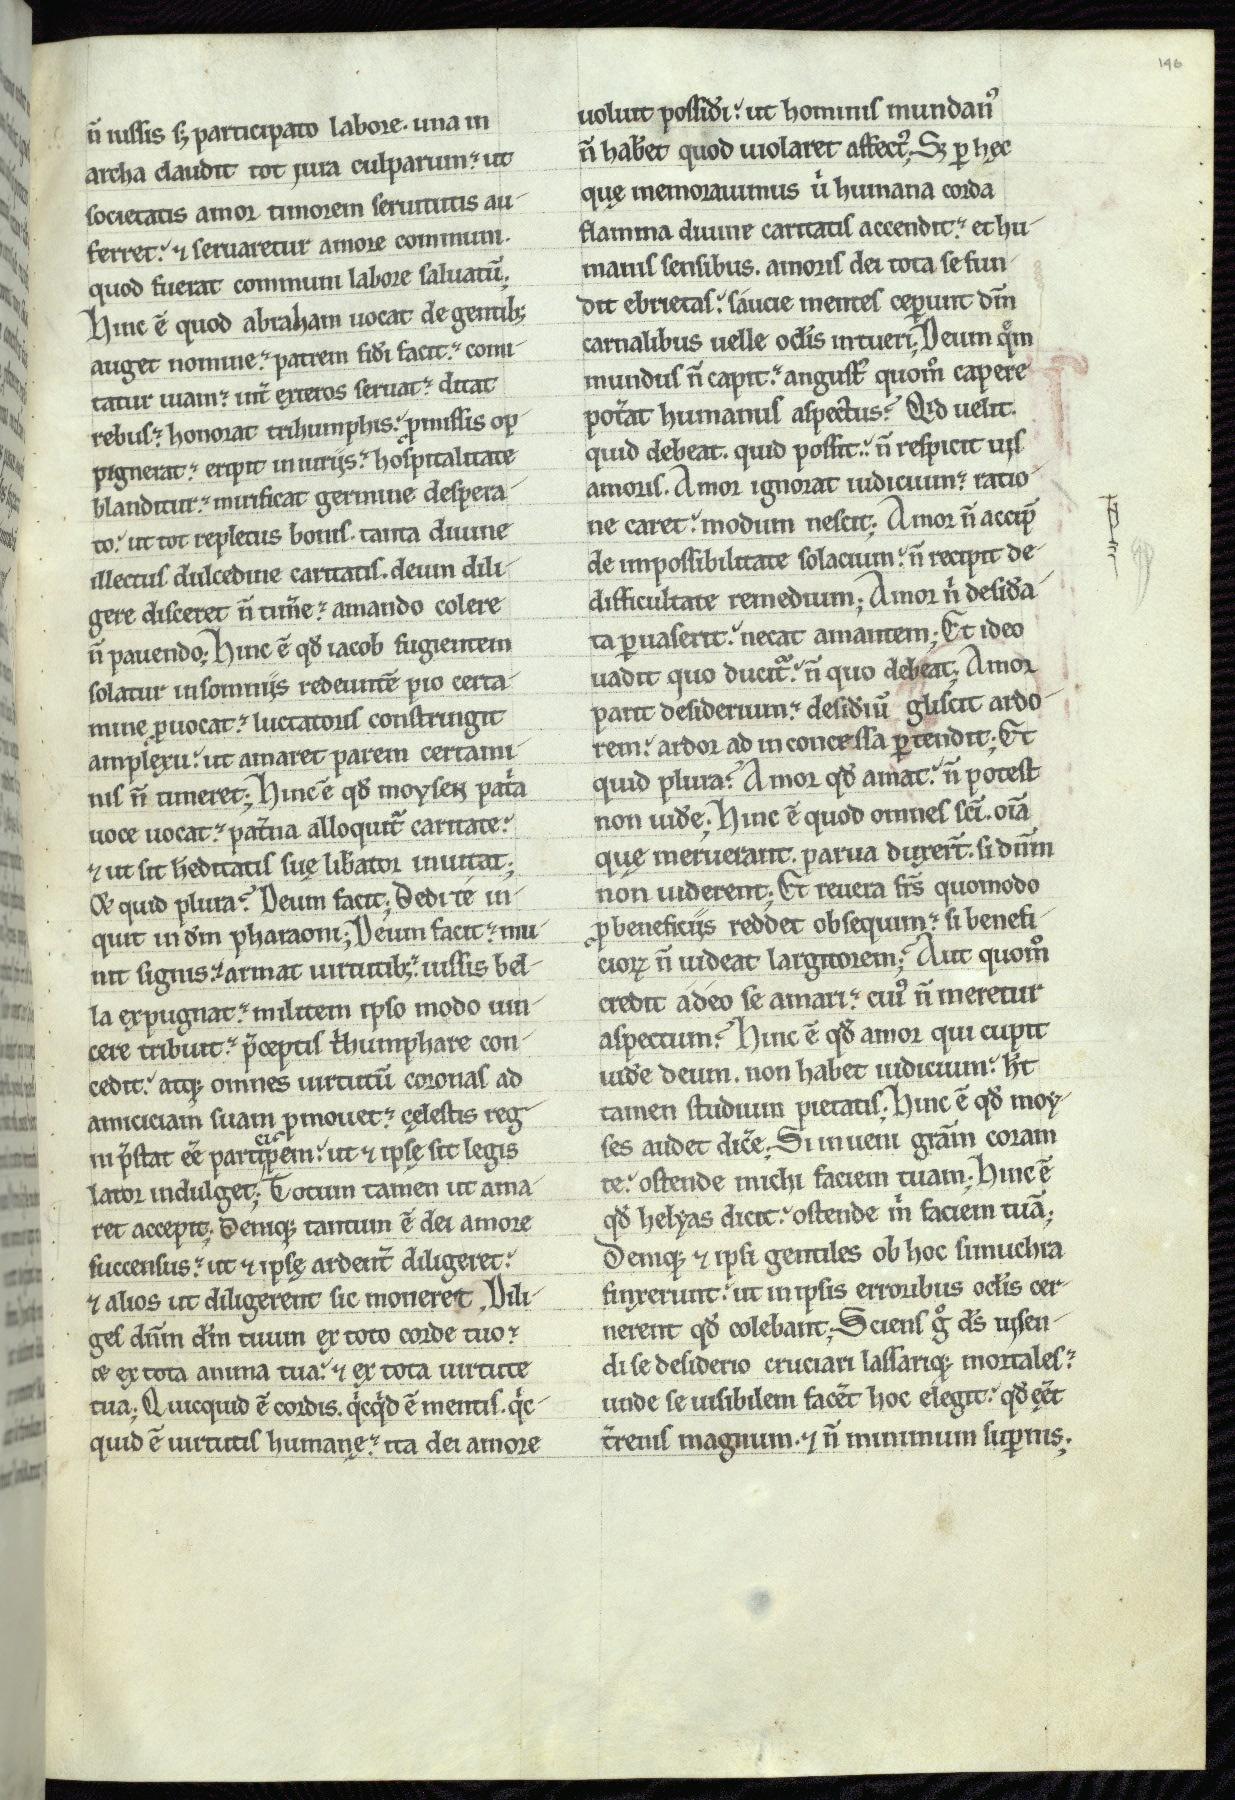 146
n̄ iussis sꝫ participato labore. una in
archa claudit tot jura culparum ut
societatis amor timorem seruitutis au-
ferret. ⁊ seruaretur amore communi.
quod fuerat communi labore saluatū;
Hinc ē quod abraham uocat de gentibꝫ
auget nomine. patrem fidi facit. comi-
tatur uiam. int̄ exteros seruat. ditat
rebus. honorat trihumphis. ꝓmissis op
pignerat. eripit iniurijs. hospitalitate
blanditur. mirificat germine despera-
to. ut tot repletus bonis. tanta diuine
illectus dulcedine caritatis. deum dili-
gere disceret n̄ tim̄e. amando colere
n̄ pauendo; Hinc ē qđ iacob fugientem
solatur in somnijs redeuntē pio certa-
mine ꝓuocat. luctatoris constringit
amplexu. ut amaret parem certami-
nis n̄ timeret; Hinc ē qđ moysen pat̄a
uoce uocat. pat̄na alloquit᷑ caritate.
⁊ ut sit h̄editatis suę lib̄ator inuitat;
& quid plura? Deum facit; Dedi te in-
quit in dm̄ pharaoni; Deum facit. mu-
nit signis. armat uirtutibꝫ. iussis bel-
la expugnat. militem ipso modo uin-
cere tribuit. p̄ceptis t̄humphare con-
cedit. atqꝫ omnes uirtutū coronas ad
amiciciam suam ꝓmouet. cęlestis reg-
ni p̄stat eē participem. ut ⁊ ipsę sit legis
lator indulget; Totum tamen ut ama-
ret accepit; Deniqꝫ tantum ē dei amore
succensus. ut ⁊ ipsę ardent̄ diligeret.
⁊ alios ut diligerent sic moneret; Dili-
ges dn̄m dm̄ tuum ex toto corde tuo.
& ex tota anima tua. ⁊ ex tota uirtute
tua; Quicquid ē cordis. qͥcqͥd ē mentis. qͥc-
quid ē uirtutis humanę. ita dei amore
uoluit possid̄i. ut hominis mundanꝰ
n̄ hab̄et quod uiolaret affectꝰ; Sꝫ ꝑ hęc
quę memorauimus uͥ humana corda
flamma diuine caritatis accendit. et hu-
manis sensibus. amoris dei tota se fun-
dit ebrietas. saucie mentes cęperunt dm̄
carnalibus uelle oclis intueri; Deum qͦm
mundus n̄ capit. angustꝰ quomͦ capere
pot̄at humanus aspectus? Qͥd uelit.
quid debeat. quid possit. n̄ respicit uis
amoris. Amor ignorat iudicium. ratio-
ne caret. modum nescit; Amor n̄ accip̄
de impossibilitate solacium. n̄ recipit de-
difficultate remedium; Amor nͥ desid̄a-
ta ꝑuaserit. necat amantem; Et ideo
uadit quo ducit᷑. n̄ quo debeat; Amor
parit desiderium. desid̄iū gliscit ardo-
rem. ardor ad inconcessa ꝑtendit; Et
quid plura? Amor qđ amat. n̄ potest
non uid̄e; Hinc ē quod omnes sc̄i. oīa
quę meruerant. parua duxer̄t. si dn̄m
non uiderent; Et reuera fr̄s quomodo
ꝓ beneficijs reddet obsequium. si benefi-
cioꝝ n̄ uideat largitorem? Aut quomͦ
credit a deo se amari. cuiꝰ n̄ meretur
aspectum? Hinc ē qđ amor qui cupit
uid̄e deum. non habet iudicium. h̄t
tamen studium pietatis; Hinc ē qđ moy-
ses audet dic̄e; Si inueni grām coram
te. ostende michi faciem tuam; Hinc ē
qđ helyas dicit. ostende mͥ faciem tuā;
Deniqꝫ ⁊ ipsi gentiles ob hoc simuchra
finxerunt. ut in ipsis erroribus oclis cer-
nerent qđ colebant; Sciens gͦ ds̄ uisen-
di se desiderio cruciari lassariqꝫ mortales.
unde se uisibilem fac̄et hoc elegit. qđ ēet
t̄renis magnum. ⁊ n̄ minimum suꝑnis;